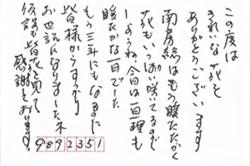 この度は
きれいな花を
ありがとうございます
南房総はもう暖たかで
花もいっぱい咲いてるので
しょうね 今日は亘理も
暖たかな一日でした
もう三年にもなるまに
皆様からすっかり
お世話になりました 本
仮設も皆花を見て
感謝しております
9892351